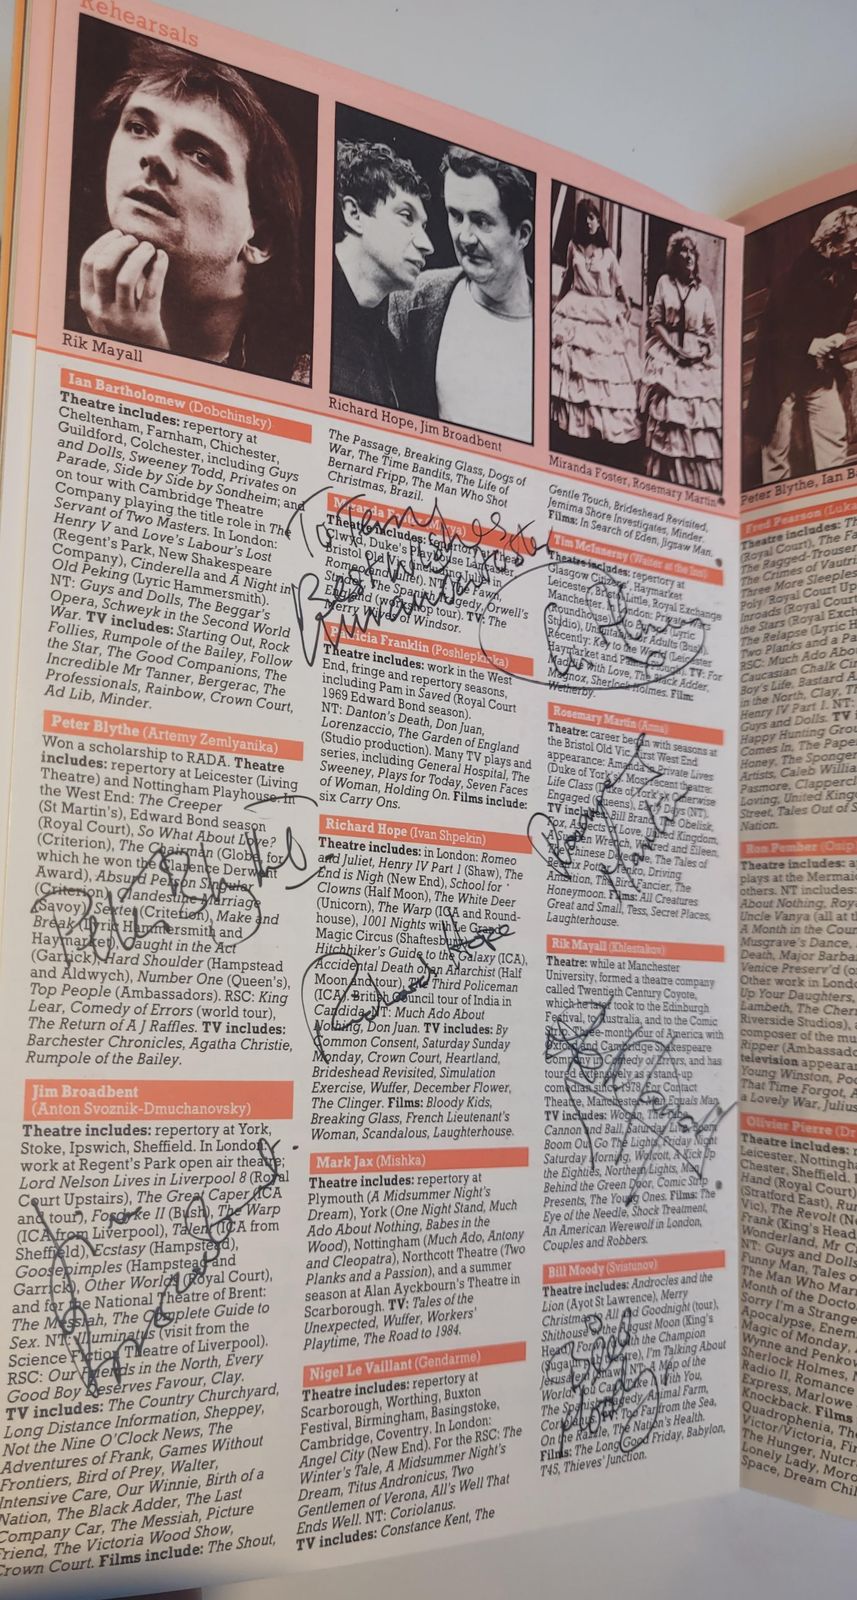 Rehearsals
Rik Mayall
Richard Hope, Jim Broadbent
Miranda Foster, Rosemary Martin
Peter Blythe, Ian B
Ian Bartholomew (Dobchinsky)
Theatre includes: repertory at
Cheltenham, Farnham, Chichester,
Guildford, Colchester, including Guys
and Dolls, Sweeney Todd, Privates on
Parade, Side by Side by Sondheim; and
on tour with Cambridge Theatre
Company playing the title role in The
Servant of Two Masters. In London:
Henry V and Love's Labour's Lost
(Regent's Park, New Shakespeare
Company), Cinderella and A Night in
Old Peking (Lyric Hammersmith).
NT: Guys and Dolls, The Beggar's
Opera, Schweyk in the Second World
War. TV includes: Starting Out, Rock
Follies, Rumpole of the Bailey, Follow
the Star, The Good Companions, The
Incredible Mr Tanner, Bergerac, The
Professionals, Rainbow, Crown Court,
Ad Lib, Minder.
Peter Blythe (Artemy Zemlyanika)
Won a scholarship to RADA. Theatre
includes: repertory at Leicester (Living
Theatre) and Nottingham Playhouse. In
the West End: The Creeper
(St Martin's), Edward Bond season
(Royal Court), So What About Love?
(Criterion), The Chairman (Globe, for
which he won the Clarence Derwent
Award), Absurd Person Singular
(Criterion), Clandestine Marriage
(Savoy), Sextet (Criterion), Make and
Break (Lyric Hammersmith and
Haymarket), Caught in the Act
(Garrick), Hard Shoulder (Hampstead
and Aldwych), Number One (Queen's),
Top People (Ambassadors). RSC: King
Lear, Comedy of Errors (world tour),
The Return of A J Raffles. TV includes:
Barchester Chronicles, Agatha Christie,
Rumpole of the Bailey.
Jim Broadbent
(Anton Svoznik-Dmuchanovsky)
Theatre includes: repertory at York,
Stoke, Ipswich, Sheffield. In London
work at Regent's Park open air theatre;
Lord Nelson Lives in Liverpool 8 (Royal
Court Upstairs), The Great Caper (ICA
and tour), Fosdyke II (Bush), The Warp
(ICA from Liverpool), Talent (ICA from
Sheffield), Ecstasy (Hampstead),
Goosepimples (Hampstead and
Garrick), Other Worlds (Royal Court),
and for the National Theatre of Brent:
The Messiah, The Complete Guide to
Sex. NT: Illuminatus (visit from the
Science Fiction Theatre of Liverpool).
RSC: Our Friends in the North, Every
Good Boy Deserves Favour, Clay.
TV includes: The Country Churchyard,
Long Distance Information, Sheppey,
Not the Nine O'Clock News, The
Adventures of Frank, Games Without
Frontiers, Bird of Prey, Walter,
Intensive Care, Our Winnie, Birth of a
Nation, The Black Adder, The Last
Company Car, The Messiah, Picture
Friend, The Victoria Wood Show,
Crown Court. Films include: The Shout,
The Passage, Breaking Glass, Dogs of
War, The Time Bandits, The Life of
Bernard Fripp, The Man Who Shot
Christmas, Brazil.
Miranda Foster (Marya)
Theatre includes: repertory at Theatr
Clwyd, Duke's Playhouse Lancaster,
Bristol Old Vic (including Juliet in
Romeo and Juliet). NT: The Fawn,
Strider, The Spanish Tragedy, Orwell's
England (workshop tour). TV: The
Merry Wives of Windsor.
Patricia Franklin (Poshlepkinka)
Theatre includes: work in the West
End, fringe and repertory seasons,
including Pam in Saved (Royal Court
1969 Edward Bond season).
NT: Danton's Death, Don Juan,
Lorenzaccio, The Garden of England
(Studio production). Many TV plays and
series, including General Hospital, The
Sweeney, Plays for Today, Seven Faces
of Woman, Holding On. Films include:
six Carry Ons.
Richard Hope (Ivan Shpekin)
Theatre includes: in London: Romeo
and Juliet, Henry IV Part 1 (Shaw), The
End is Nigh (New End), School for
Clowns (Half Moon), The White Deer
(Unicorn), The Warp (ICA and Round-
house), 1001 Nights with Le Grand
Magic Circus (Shaftesbury),
Hitchhiker's Guide to the Galaxy (ICA),
Accidental Death of an Anarchist (Half
Moon and tour), The Third Policeman
(ICA). British Council tour of India in
Candida. NT: Much Ado About
Nothing, Don Juan. TV includes: By
Common Consent, Saturday Sunday
Monday, Crown Court, Heartland,
Brideshead Revisited, Simulation
Exercise, Wuffer, December Flower,
The Clinger. Films: Bloody Kids,
Breaking Glass, French Lieutenant's
Woman, Scandalous, Laughterhouse.
Mark Jax (Mishka)
Theatre includes: repertory at
Plymouth (A Midsummer Night's
Dream), York (One Night Stand, Much
Ado About Nothing, Babes in the
Wood), Nottingham (Much Ado, Antony
and Cleopatra), Northcott Theatre (Two
Planks and a Passion), and a summer
season at Alan Ayckbourn's Theatre in
Scarborough. TV: Tales of the
Unexpected, Wuffer, Workers'
Playtime, The Road to 1984.
Nigel Le Vaillant (Gendarme)
Theatre includes: repertory at
Scarborough, Worthing, Buxton
Festival, Birmingham, Basingstoke,
Cambridge, Coventry. In London:
Angel City (New End). For the RSC: The
Winter's Tale, A Midsummer Night's
Dream, Titus Andronicus, Two
Gentlemen of Verona, All's Well That
Ends Well. NT: Coriolanus.
TV includes: Constance Kent, The
Gentle Touch, Brideshead Revisited,
Jemima Shore Investigates, Minder.
Films: In Search of Eden, Jigsaw Man.
Tim McInnerny (Waiter at the Inn)
Theatre includes: repertory at
Glasgow Citizens', Haymarket
Leicester, Bristol Little, Royal Exchange
Manchester. In London:
(Roundhouse), (Lyric
Studio), Adults (Bush).
Recently: Key to the World (Leicester
Haymarket and TV: For
Maddie with Love, The Black Adder,
Magnox, Sherlock Holmes. Film:
Wetherby.
Rosemary Martin (Anna)
Theatre: career began with seasons at
the Bristol Old Vic. First West End
appearance: Amanda in Private Lives
(Duke of York's). Most recent theatre:
Life Class (Duke of York's), Otherwise
Engaged (Queens), Early Days (NT).
TV includes: Bill Brand, The Obelisk,
Fox, Aspects of Love, United Kingdom,
A Sudden Wrench, Wilfred and Eileen,
The Chinese Detective, The Tales of
Beatrix Potter, Driving
Ambition, The Bird Fancier, The
Honeymoon. Films: All Creatures
Great and Small, Tess, Secret Places,
Laughterhouse.
Rik Mayall (Khlestakov)
Theatre: while at Manchester
University, formed a theatre company
called Twentieth Century Coyote,
which he later took to the Edinburgh
Festival, to Australia, and to the Comic
Strip. Three-month tour of America with
Oxford and Cambridge Shakespeare
Company in Comedy of Errors, and has
toured extensively as a stand-up
comedian since 1978. For Contact
Theatre, Manchester: Man Equals Man.
TV includes: Wogan, The Tube,
Cannon and Ball, Saturday Live, Boom
Boom Out Go The Lights, Friday Night
Saturday Morning, Wolcott, A Kick Up
the Eighties, Northern Lights, Man
Behind the Green Door, Comic Strip
Presents, The Young Ones. Films: The
Eye of the Needle, Shock Treatment,
An American Werewolf in London,
Couples and Robbers.
Bill Moody (Svistunov)
Theatre includes: Androcles and the
Lion (Ayot St Lawrence), Merry
Christmas All and Goodnight (tour),
Shithouse of the August Moon (King's
Head), Born with the Champion
Theatre), I'm Talking About
Jerusalem (Shaw). NT: A Map of the
World, You Can't Take It With You,
The Spanish Tragedy, Animal Farm,
Coriolanus. TV: Too Far from the Sea,
On the Razzle, The Nation's Health.
Films: The Long Good Friday, Babylon,
T45, Thieves' Junction.
Fred Pearson (Luka
Theatre includes: Th
(Royal Court), The Fa
The Ragged-Trouser
The Crimes of Vautri
Three More Sleeples
Poly/Royal Court Up
Inroads (Royal Court
the Stars (Royal Exch
The Relapse (Lyric H
Two Planks and a Pa
RSC: Much Ado Abo
Caucasian Chalk Cir
Boy's Life, Bastard A
in the North, Clay, Th
Henry IV Part I. NT:
Guys and Dolls. TV i
Happy Hunting Grou
Comes In, The Pape
Honey, The Sponger
Artists, Caleb Willia
Pasmore, Clapperc
Loving, United King
Street, Tales Out of S
Nation.
Ron Pember (Osip
Theatre includes: a
plays at the Mermai
others. NT includes:
About Nothing, Roy
Uncle Vanya (all at th
A Month in the Coun
Musgrave's Dance,
Death, Major Barba
Venice Preserv'd (o
Other work in Lond
Up Your Daughters,
Lambeth, The Cher
Riverside Studios),
composer of the mu
Ripper (Ambassado
television appearan
Young Winston, Poo
That Time Forgot, A
a Lovely War, Julius
Olivier Pierre (Dr
Theatre includes: r
Leicester, Nottingha
Chester, Sheffield. I
Hand (Royal Court)
(Stratford East), Rur
Vic), The Revolt (Ne
Frank (King's Head
Wonderland, Mr C
NT: Guys and Dolls
Funny Man, Tales o
The Man Who Mar
Month of the Docto
Sorry I'm a Strange
Apocalypse, Enem
Magic of Monday,
Wynne and Penkov
Sherlock Holmes, M
Radio II, Romance
Express, Marlowe
Knockback. Films
Quadrophenia, The
Victor/Victoria, Fir
The Hunger, Nutcr
Lonely Lady, Moro
Space, Dream Chil
To
Best Wishes
Peter Blythe
Jim Broadbent
Richard Hope
Rosemary Martin
Bill Moody